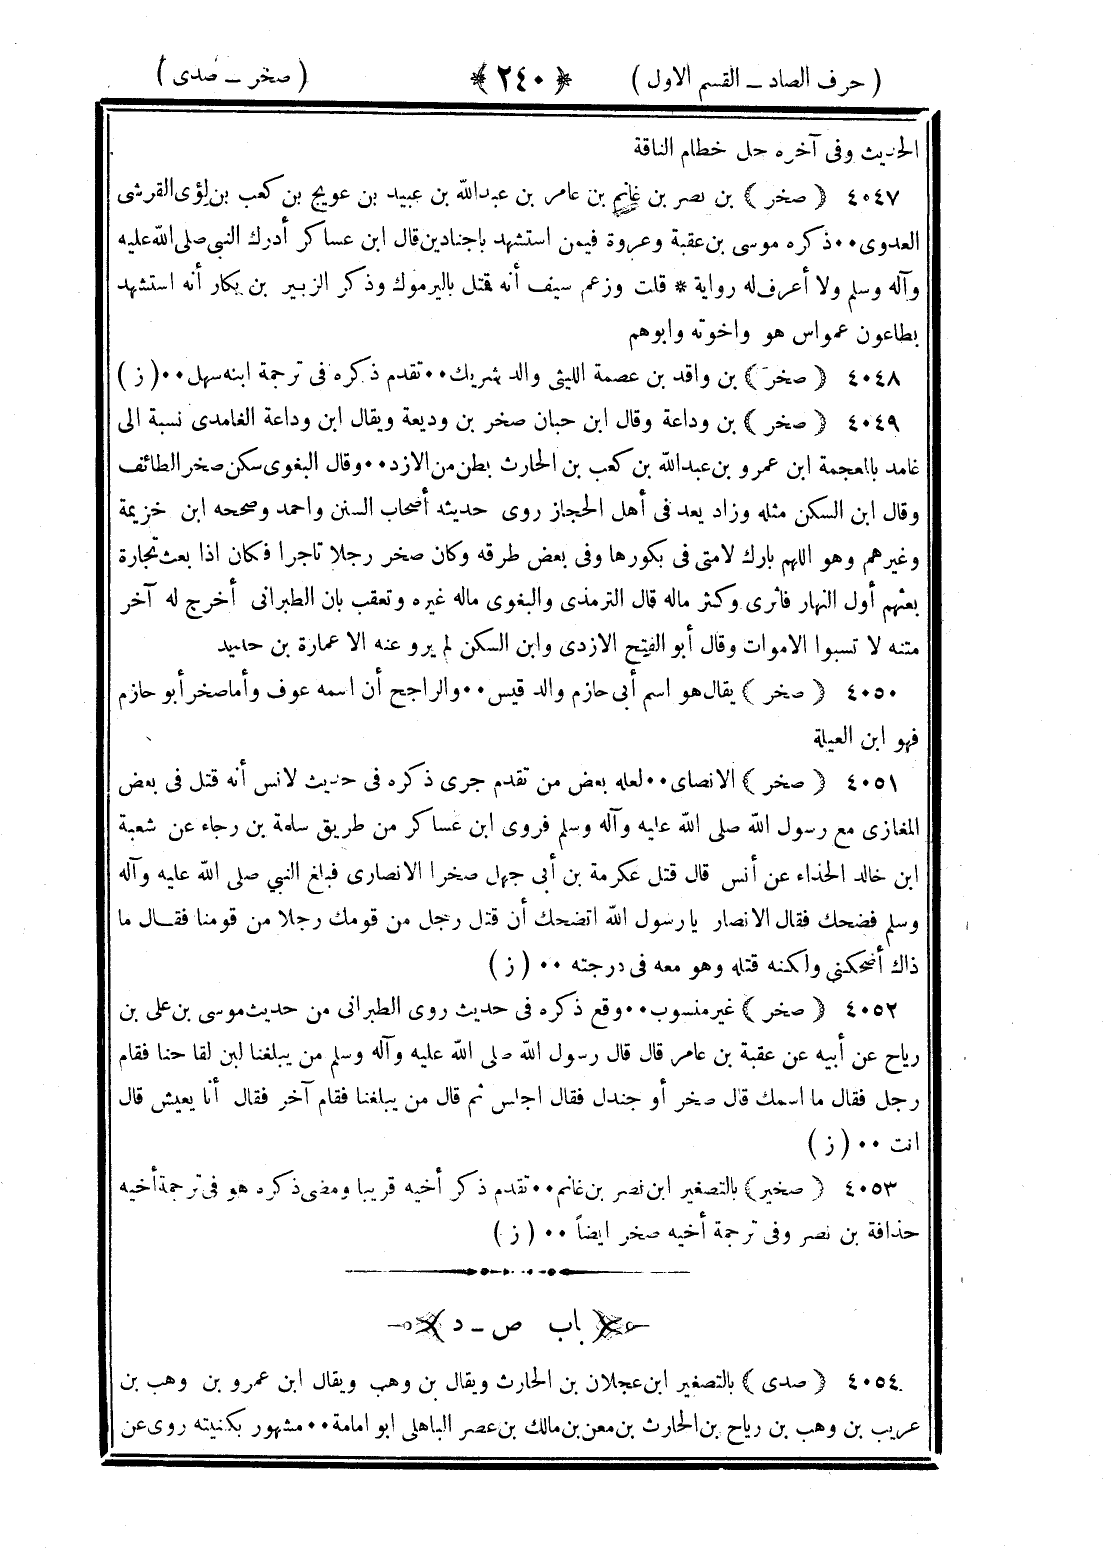 ( حرف الصاد ــ القسم الاول ) ﴿ ٢٤٠ ﴾ ( صخر ــ صدى )
الحديث وفى آخره حل خطام الناقة
٤٠٤٧ ﴿ صخر ﴾ بن نصر بن غانم بن عامر بن عبدالله بن عبيد بن عويج بن كعب بن لؤى القرشى
العدوى ٠٠ ذكره موسى بن عقبة وعروة فيمن استشهد باجنادين قال ابن عساكر أدرك النبى صلى الله عليه
وآله وسلم ولا أعرف له رواية * قلت وزعم سيف أنه قتل باليرموك وذكر الزبير بن بكار أنه استشهد
بطاعون عمواس هو واخوته وابوهم
٤٠٤٨ ﴿ صخر ﴾ بن واقد بن عصمة الليثى والد شريك ٠٠ تقدم ذكره فى ترجمة ابنه سهل ٠٠ ( ز )
٤٠٤٩ ﴿ صخر ﴾ بن وداعة وقال ابن حبان صخر بن وديعة ويقال ابن وداعة الغامدى نسبة الى
غامد بالمعجمة ابن عمرو بن عبدالله بن كعب بن الحارث بطن من الازد ٠٠ وقال البغوى سكن صخر الطائف
وقال ابن السكن مثله وزاد يعد فى أهل الحجاز روى حديثه أصحاب السنن واحمد وصححه ابن خزيمة
وغيرهم وهو اللهم بارك لامتى فى بكورها وفى بعض طرقه وكان صخر رجلا تاجرا فكان اذا بعث تجارة
بعثهم أول النهار فأثرى وكثر ماله قال الترمذى والبغوى ماله غيره وتعقب بان الطبرانى أخرج له آخر
متنه لا تسبوا الاموات وقال أبو الفتح الازدى وابن السكن لم يرو عنه الا عمارة بن حديد
٤٠٥٠ ﴿ صخر ﴾ يقال هو اسم أبى حازم والد قيس ٠٠ والراجح أن اسمه عوف وأما صخر أبو حازم
فهو ابن العيلة
٤٠٥١ ﴿ صخر ﴾ الانصاى ٠٠ لعله بعض من تقدم جرى ذكره فى حديث لانس أنه قتل فى بعض
المغازى مع رسول الله صلى الله عليه وآله وسلم فروى ابن عساكر من طريق سلمة بن رجاء عن شعبة
ابن خالد الحذاء عن أنس قال قتل عكرمة بن أبى جهل صخرا الانصارى فبلغ النبي صلى الله عليه وآله
وسلم فضحك فقال الانصار يا رسول الله اتضحك أن قتل رجل من قومك رجلا من قومنا فقال ما
ذاك أضحكنى ولكنه قتله وهو معه فى درجته ٠٠ ( ز )
٤٠٥٢ ﴿ صخر ﴾ غير منسوب ٠٠ وقع ذكره فى حديث روى الطبرانى من حديث موسى بن على بن
رياح عن أبيه عن عقبة بن عامر قال قال رسول الله صلى الله عليه وآله وسلم من يبلغنا لبن لقا حنا فقام
رجل فقال ما اسمك قال صخر أو جندل فقال اجلس ثم قال من يبلغنا فقام آخر فقال أنا يعيش قال
انت ٠٠ ( ز )
٤٠٥٣ ﴿ صخير ﴾ بالتصغير ابن نصر بن غانم ٠٠ تقدم ذكر أخيه قريبا ومضى ذكره هو فى ترجمة أخيه
حذافة بن نصر وفى ترجمة أخيه صخر ايضاً ٠٠ ( ز )
﴿ باب ص ــ د ﴾
٤٠٥٤ ﴿ صدى ﴾ بالتصغير ابن عجلان بن الحارث ويقال بن وهب ويقال ابن عمرو بن وهب بن
عريب بن وهب بن رياح بن الحارث بن معن بن مالك بن عصر الباهلى ابو امامة ٠٠ مشهور بكنيته روى عن